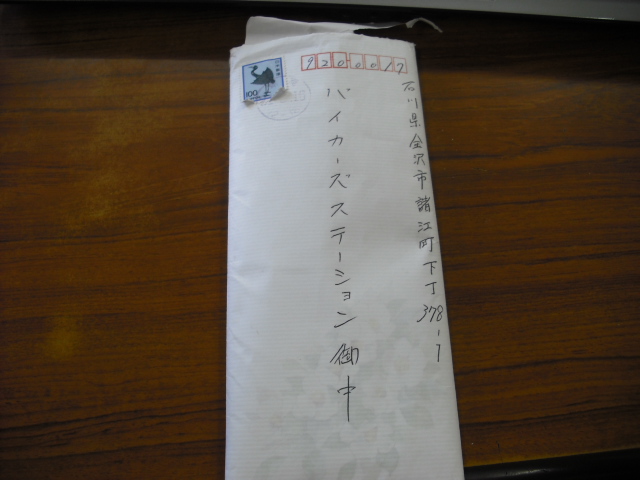 920-0017
石川県金沢市諸江町下丁378-1
バイカーズステーション御中
100